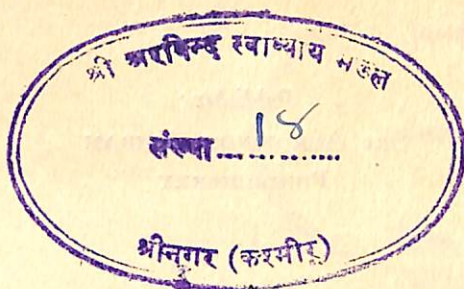 श्री अरविन्द स्वाध्याय मंडल
संख्या... 18 ......
श्रीनगर (कश्मीर)